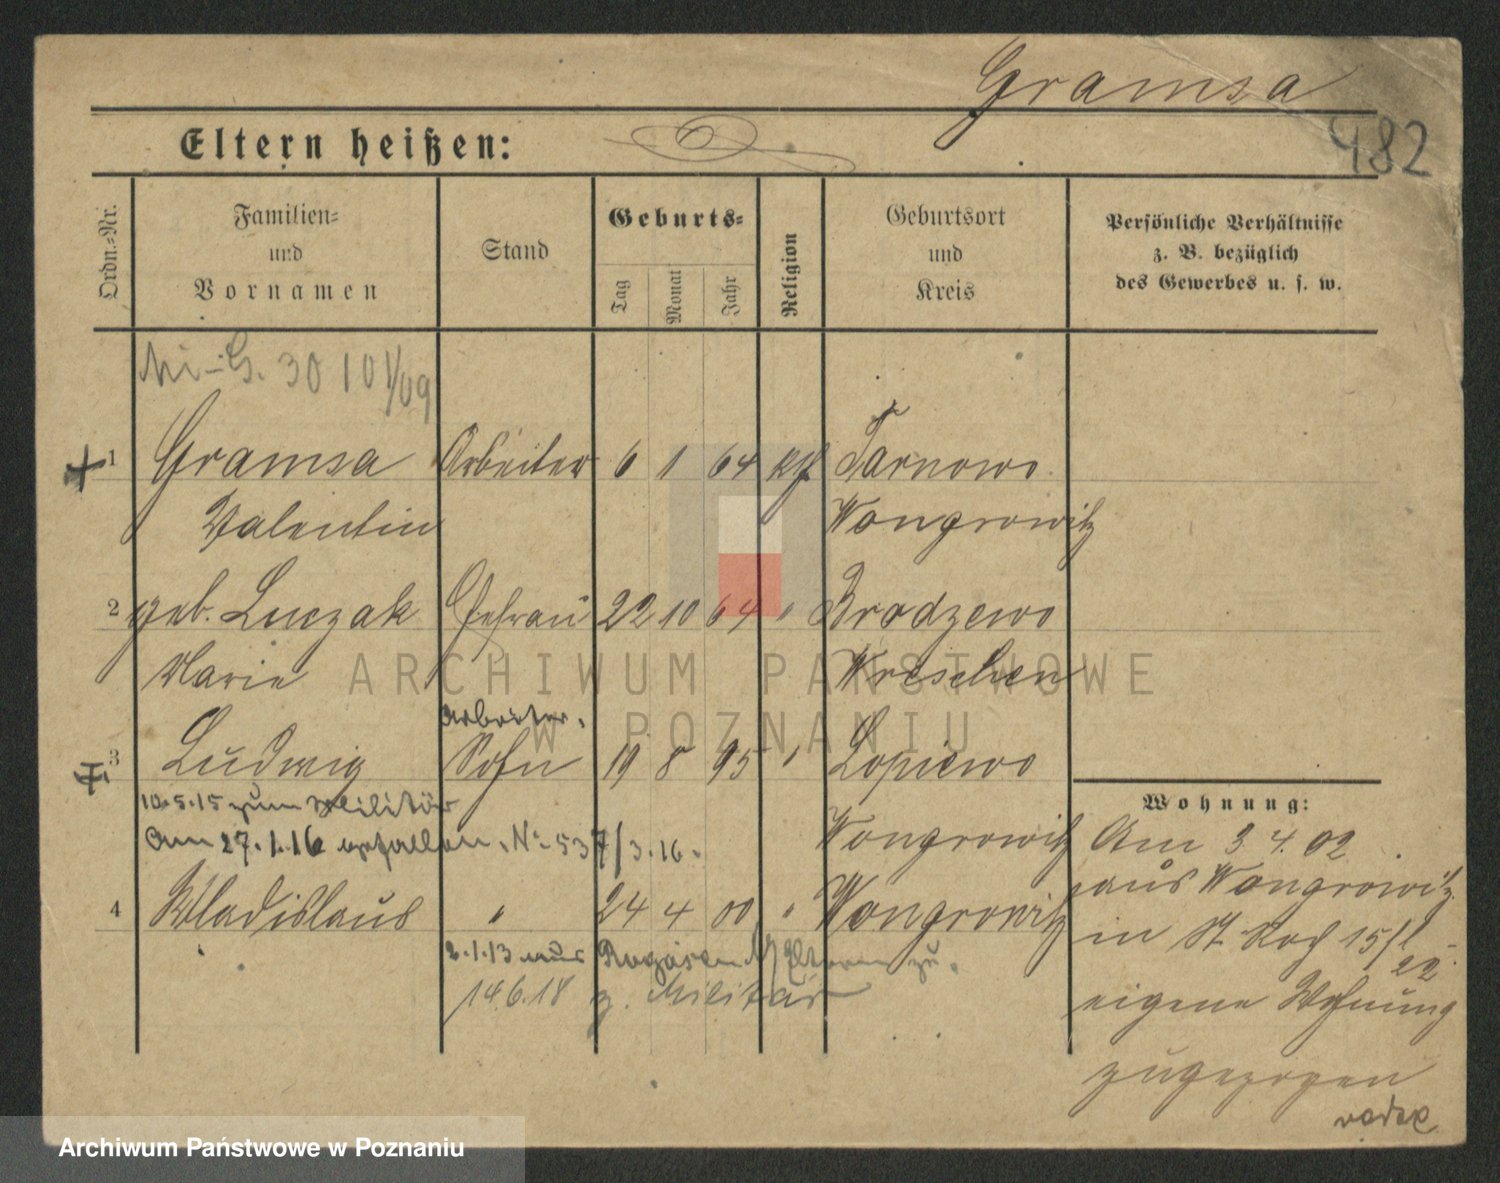 Gramsa
482
Eltern heißen:
Ordn.-Nr.
Familien-
und
Vornamen
Stand
Geburts-
Tag
Monat
Jahr
Religion
Geburtsort
und
Kreis
Persönliche Verhältnisse
z. B. bezüglich
des Gewerbes u. s. w.
30 10 1/09
1 Gramsa Arbeiter 6 1 64 kth Tarnowo
Valentin Wongrowitz
2 geb. Luczak Ehefrau 22 10 64 " Brodzewo
Marie Wreschen
Arbeiter.
3 Ludwig Sohn 19 8 95 " Lopiewo
10.5.15 zum Militär
Wongrowitz
Am 27.1.16 gefallen. N: 537/3.16.
4 Wladislaus " 24 4 00 " Wongrowitz
2.1.13 aus Rogasen Eltern zu.
14.6.18 z. Militär
Wohnung:
Am 3.4.02
aus Wongrowitz
in St. Roch 15/
22
eigene Wohnung
zugezogen
ARCHIWUM PAŃSTWOWE
W POZNANIU
Archiwum Państwowe w Poznaniu